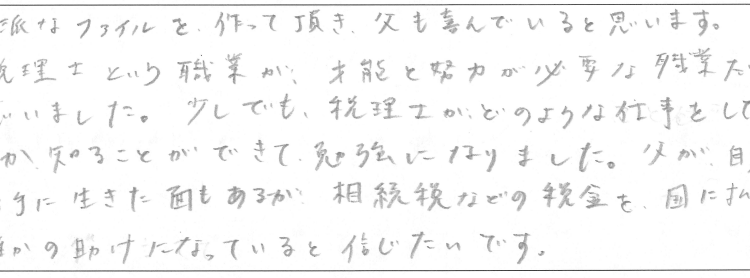 派なファイルを、作って頂き、父も喜んでいると思います。
税理士という職業が、才能と努力が必要な職業だ
思いました。少しでも、税理士が、どのような仕事をして
か、知ることができて、勉強になりました。父が、自
手に生きた面もあるが、相続税などの税金を、国に払
誰かの助けになっていると信じたいです。